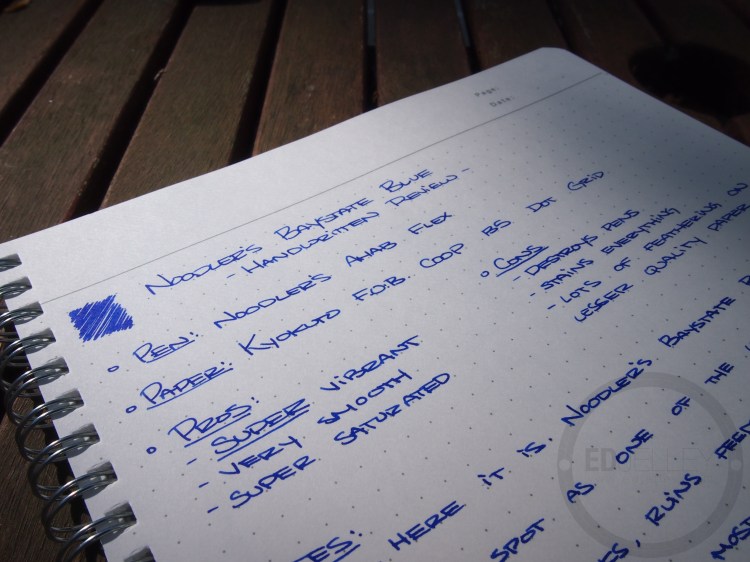 Page:
Date:
NOODLER'S BAYSTATE BLUE
- HANDWRITTEN REVIEW -
PEN: NOODLER'S AHAB FLEX
PAPER: KYOKUTO F.O.B. COOP B5 DOT GRID
PROS:
- SUPER VIBRANT
- VERY SMOOTH
- SUPER SATURATED
CONS
- DESTROYS PENS
- STAINS EVERYTHING
- LOTS OF FEATHERING ON
LESSER QUALITY PAPER
HERE IT IS, NOODLER'S BAYSTATE
SPOT AS ONE OF THE
RUINS
MOST
ED